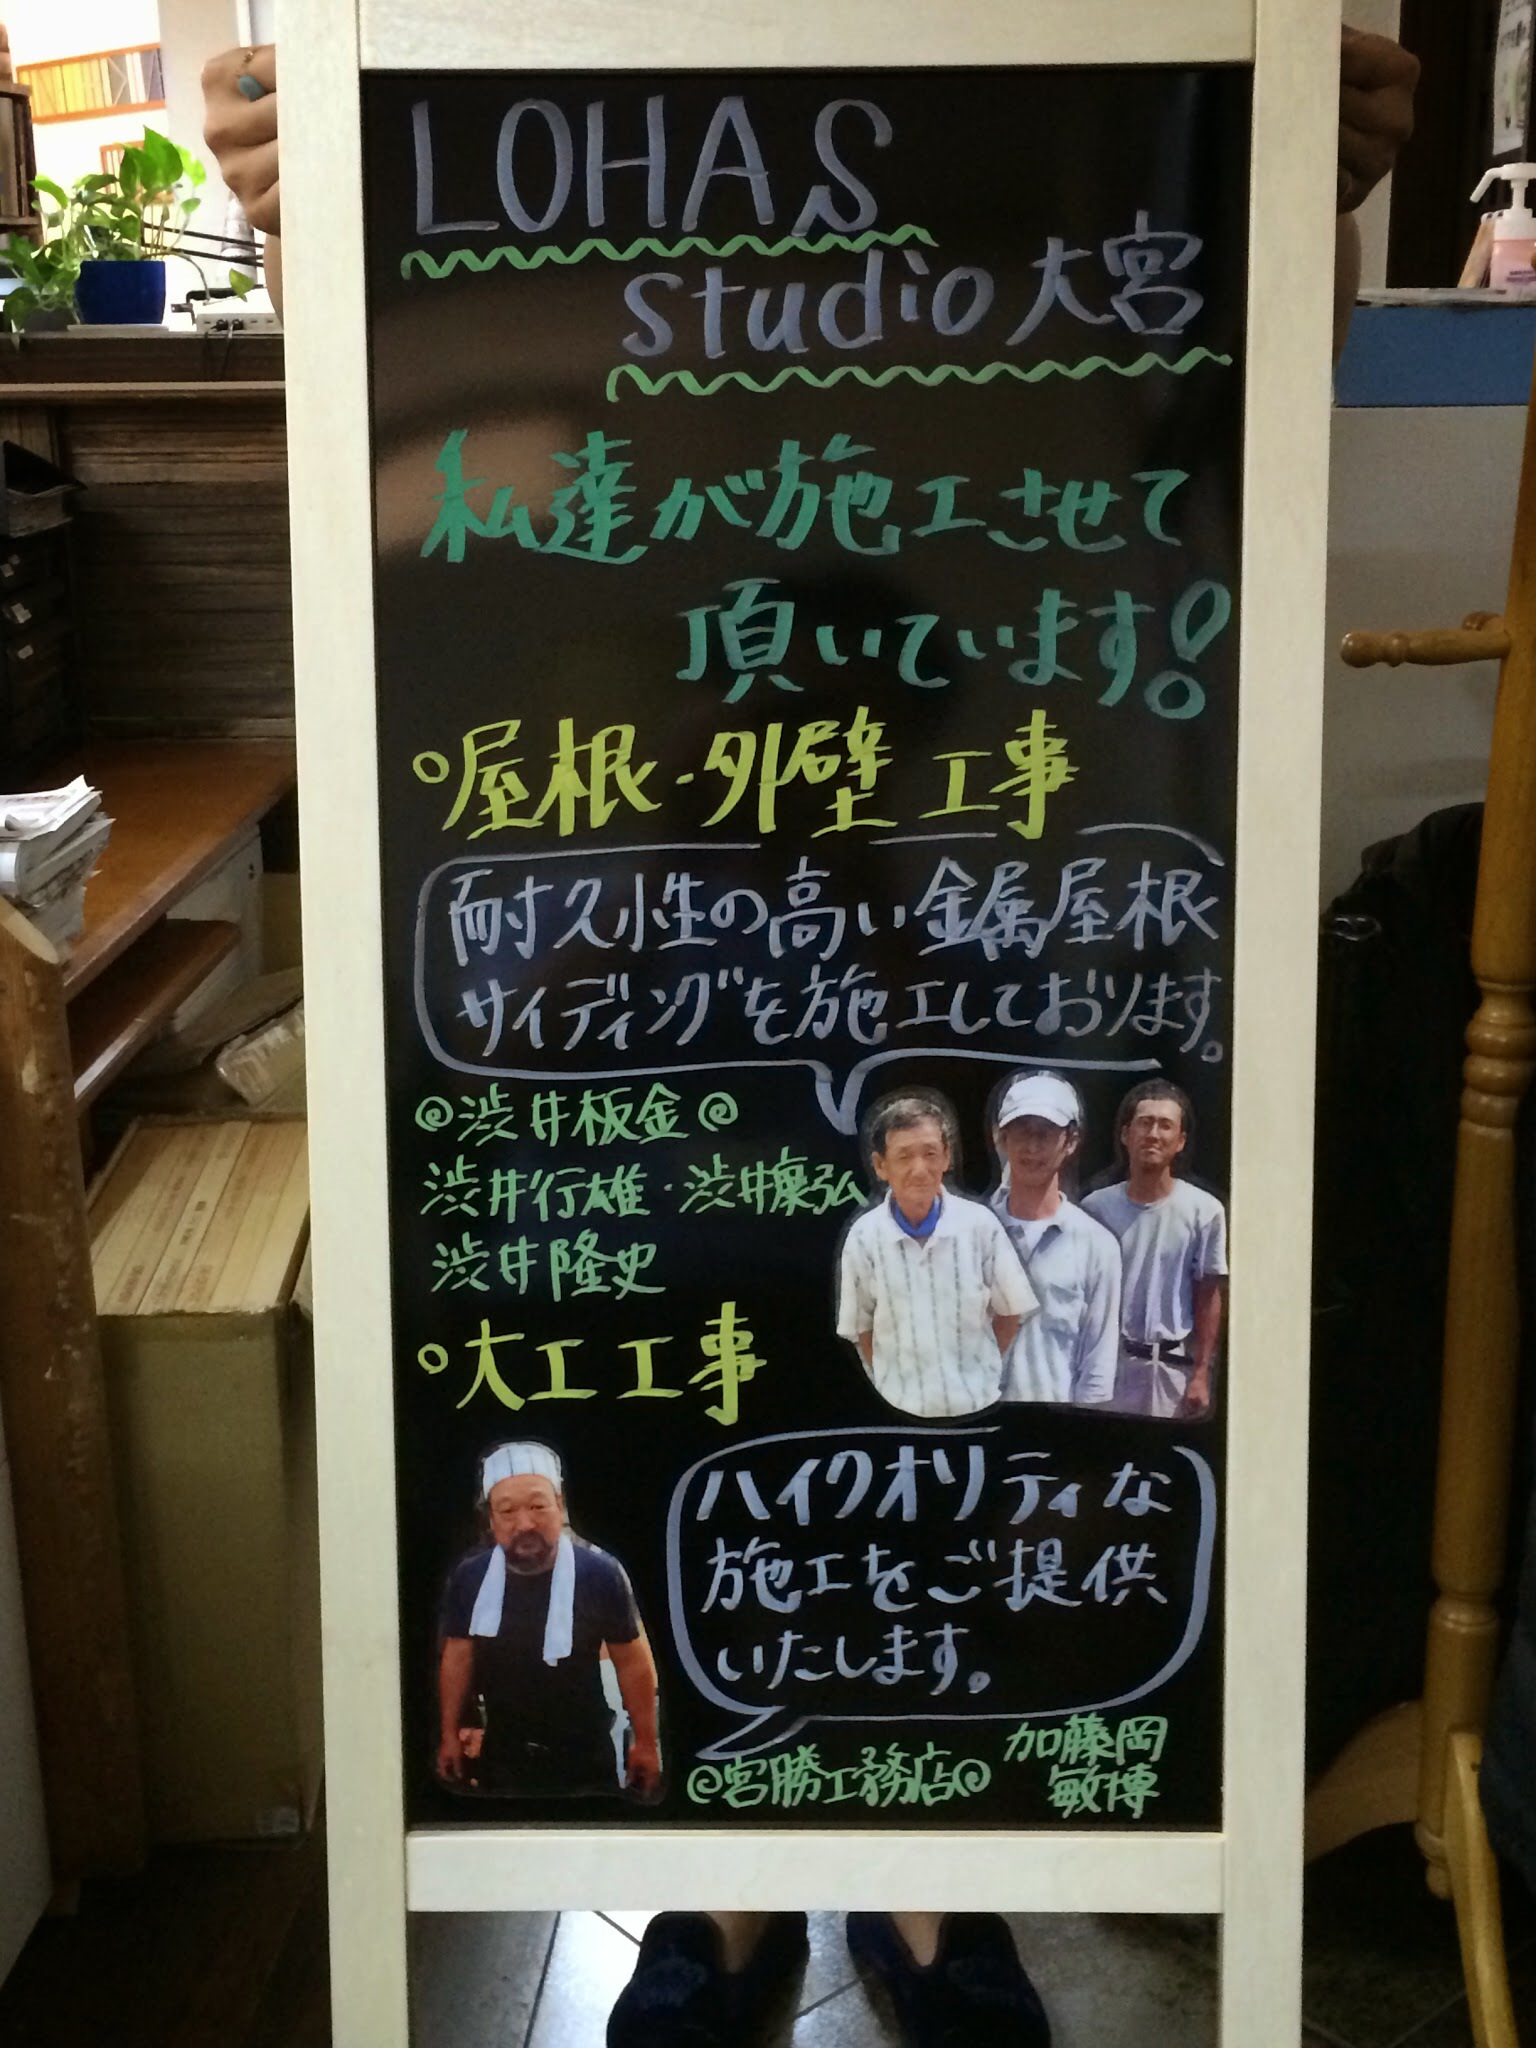 LOHAS
studio 大宮
私達が施工させて
頂いています!
屋根・外壁工事
耐久性の高い金属屋根
サイディングを施工しております。
渋井板金
渋井行雄・渋井康弘
渋井隆史
大工工事
ハイクオリティな
施工をご提供
いたします。
宮勝工務店
加藤岡
敏博